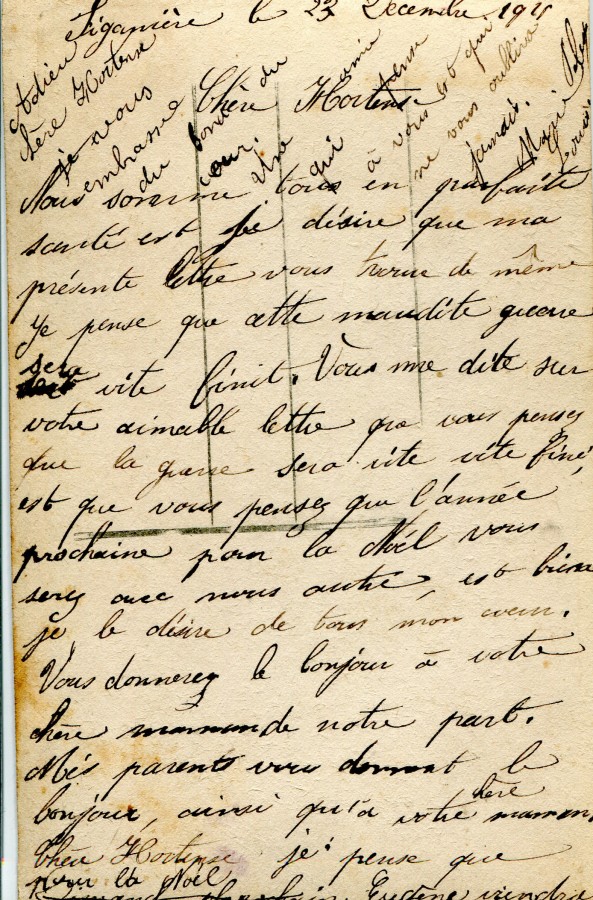 Figanière le 23 Decembre 191
Chère Hortense
Nous somme tous en parfaite
santé est je désire que ma
présente lettre vous trouve de même
Je pense que cette maudite guerre
sera vite finit. Vous me dite sur
votre aimable lettre que vous pensez
que la guerre sera vite vite finé,
est que vous pensez que l'année
prochaine pour la Noél vous
serez avec nous autre, est bien
je le désire de tous mon cœur.
Vous donnerez le bonjour à votre
chère maman de notre part.
Més parents vous donnent le
bonjour, ainsi qu'a votre chère maman.
Chère Hortense je pense que
pour la Noël
Eugène viendra
Adieu
chère Hortense
je vous
embrasse
du bonds du
cœur. Une amie
qui pense
à vous est qui
ne vous oublira
jamais.
Marie